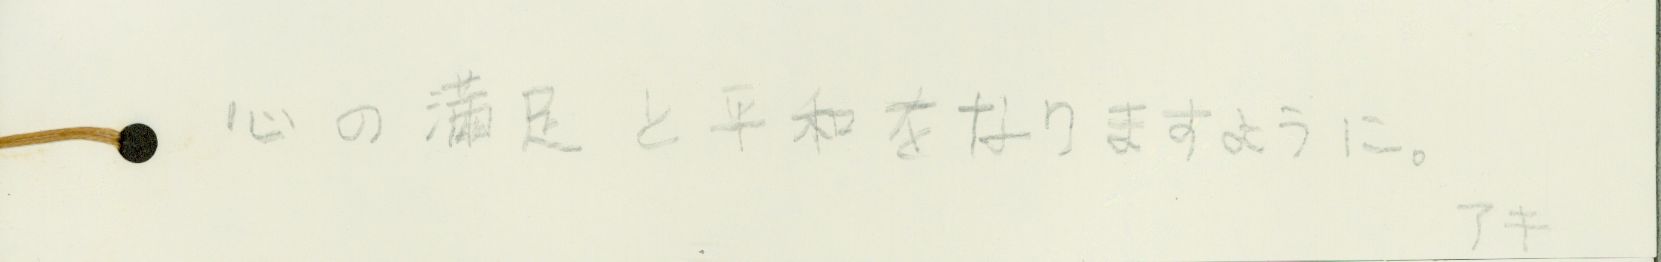 心の満足と平和をなりますように。
アキ